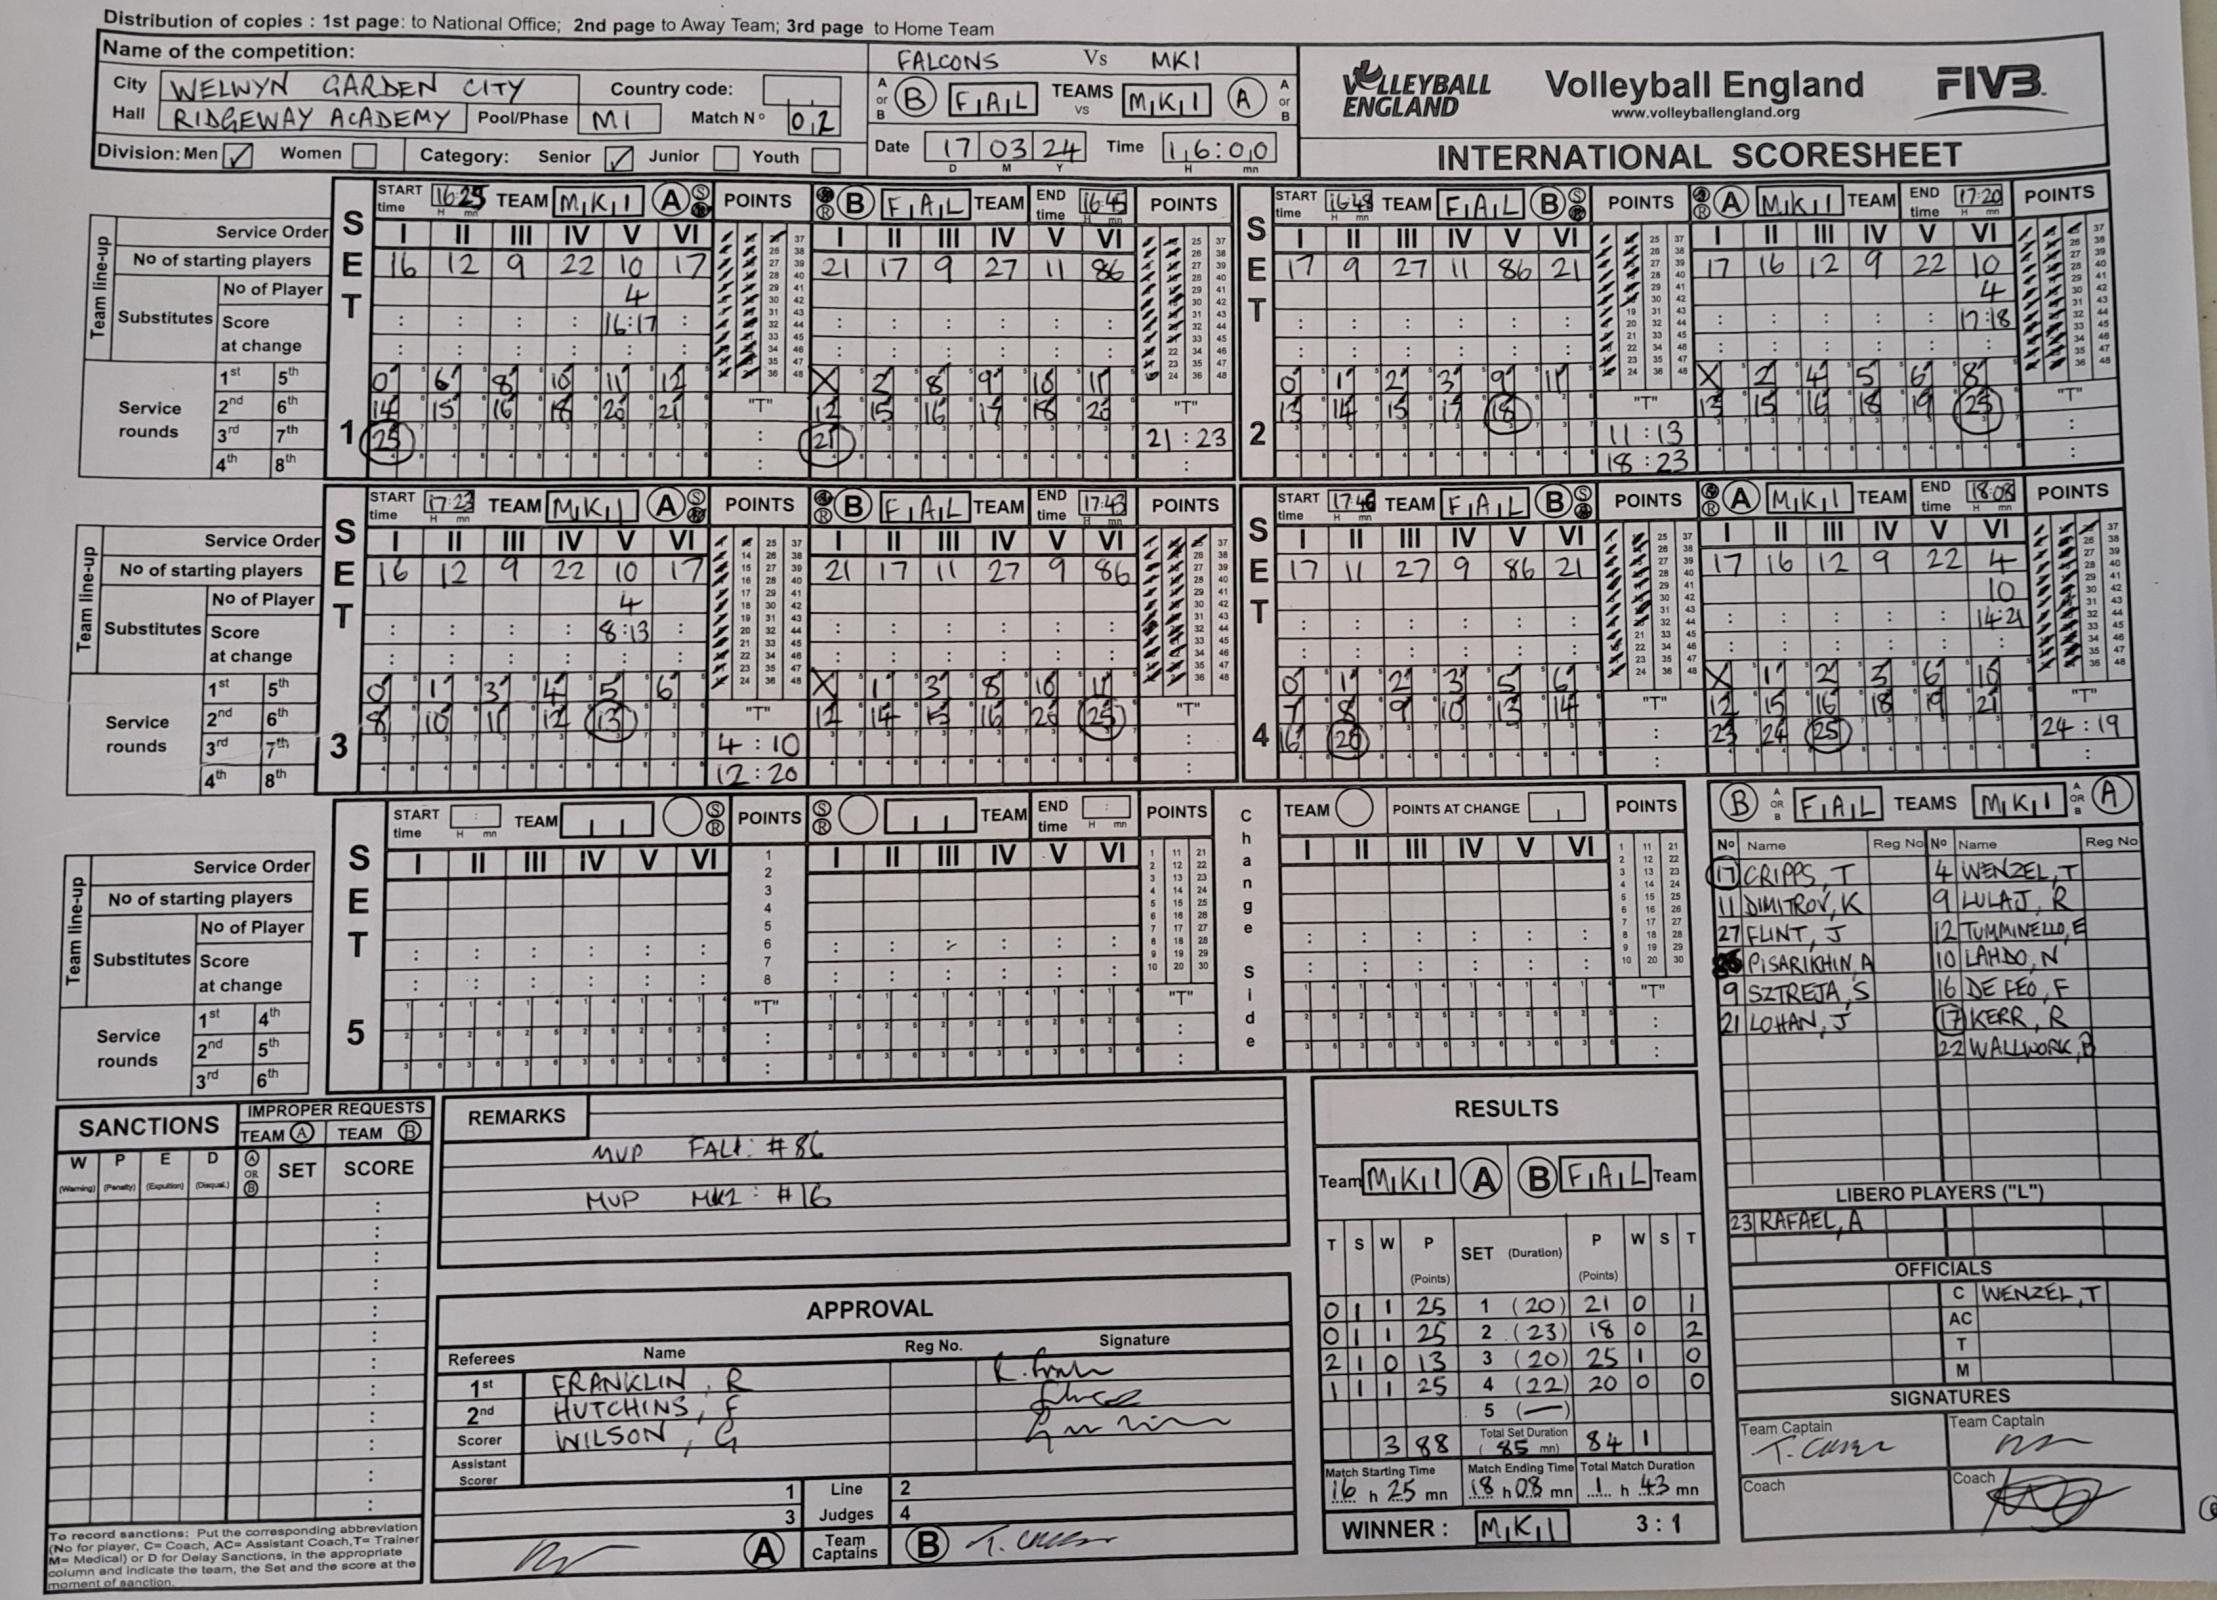 Distribution of copies : 1st page: to National Office; 2nd page to Away Team; 3rd page to Home Team
Name of the competition:
City WELWYN GARDEN CITY Country code:
Hall RIDGEWAY ACADEMY Pool/Phase M1 Match Nº 0,2
Division: Men ✓ Women Category: Senior ✓ Junior Youth
FALCONS Vs MK1
A or B B F,A,L TEAMS vs M,K,1 A A or B
Date 17 03 24 Time 1,6:0,0
D M Y H mn
VOLLEYBALL ENGLAND
Volleyball England
www.volleyballengland.org
FIVB
INTERNATIONAL SCORESHEET
SET 1
START time 16:25 TEAM M,K,1 A POINTS B F,A,L TEAM END time 16:45 POINTS
Team line-up
Service Order I II III IV V VI I II III IV V VI
No of starting players 16 12 9 22 10 17 21 17 9 27 11 86
Substitutes No of Player 4
Score at change 16:17
Service rounds
1st 5th 0 6 8 10 11 12 X 2 8 9 10 11
2nd 6th 14 15 16 18 20 21 "T" 12 15 16 17 18 20 "T"
3rd 7th 25 21 21:23
4th 8th
SET 2
START time 16:48 TEAM F,A,L B POINTS A M,K,1 TEAM END time 17:20 POINTS
I II III IV V VI I II III IV V VI
17 9 27 11 86 21 17 16 12 9 22 10
4
17:18
0 1 2 3 9 11 X 2 4 5 6 8
13 14 15 17 18 "T" 13 15 16 18 19 25 "T"
11:13
18:23
SET 3
START time 17:23 TEAM M,K,1 A POINTS B F,A,L TEAM END time 17:43 POINTS
Team line-up
Service Order I II III IV V VI I II III IV V VI
No of starting players 16 12 9 22 10 17 21 17 11 27 9 86
Substitutes No of Player 4
Score at change 8:13
Service rounds
1st 5th 0 1 3 4 5 6 X 1 3 8 10 11
2nd 6th 8 10 11 12 13 "T" 12 14 15 16 20 25 "T"
3rd 7th 4:10
4th 8th 12:20
SET 4
START time 17:46 TEAM F,A,L B POINTS A M,K,1 TEAM END time 18:08 POINTS
I II III IV V VI I II III IV V VI
17 11 27 9 86 21 17 16 12 9 22 4
10
14:21
0 1 2 3 5 6 X 1 2 3 6 10
7 8 9 10 13 14 "T" 12 15 16 18 19 21 "T"
16 20 23 24 25 24:19
SET 5
START time TEAM POINTS TEAM END time POINTS Change Side TEAM POINTS AT CHANGE POINTS
Team line-up
Service Order I II III IV V VI I II III IV V VI I II III IV V VI
No of starting players
Substitutes No of Player
Score at change
Service rounds
1st 4th "T" "T" "T"
2nd 5th
3rd 6th
B A OR B F,A,L TEAMS M,K,1 A OR B A
Nº Name Reg No Nº Name Reg No
17 CRIPPS, T 4 WENZEL, T
11 DIMITROV, K 9 LULAJ, R
27 FLINT, J 12 TUMMINELLO, E
86 PISARIKHIN, A 10 LAHDO, N
9 SZTREJA, S 16 DE FEO, F
21 LOHAN, J 17 KERR, R
22 WALLWORK, B
LIBERO PLAYERS ("L")
23 RAFAEL, A
OFFICIALS
C WENZEL, T
AC
T
M
SIGNATURES
Team Captain Team Captain
Coach Coach
SANCTIONS IMPROPER REQUESTS
TEAM A TEAM B
W P E D A OR B SET SCORE
(Warning) (Penalty) (Expultion) (Disqual.)
To record sanctions: Put the corresponding abbreviation
(No for player, C= Coach, AC= Assistant Coach, T= Trainer
M= Medical) or D for Delay Sanctions, in the appropriate
column and indicate the team, the Set and the score at the
moment of sanction.
REMARKS
MVP FAL1: #86
MVP MK1: #16
APPROVAL
Referees Name Reg No. Signature
1st FRANKLIN, R
2nd HUTCHINS, F
Scorer WILSON, G
Assistant Scorer
1 Line 2
3 Judges 4
A Team Captains B
RESULTS
Team M,K,1 A B F,A,L Team
T S W P SET (Duration) P W S T
(Points) (Points)
0 1 1 25 1 (20) 21 0 1
0 1 1 25 2 (23) 18 0 2
2 1 0 13 3 (20) 25 1 0
1 1 1 25 4 (22) 20 0 0
5 (—)
3 88 Total Set Duration (85 mn) 84 1
Match Starting Time Match Ending Time Total Match Duration
16 h 25 mn 18 h 08 mn 1 h 43 mn
WINNER: M,K,1 3:1